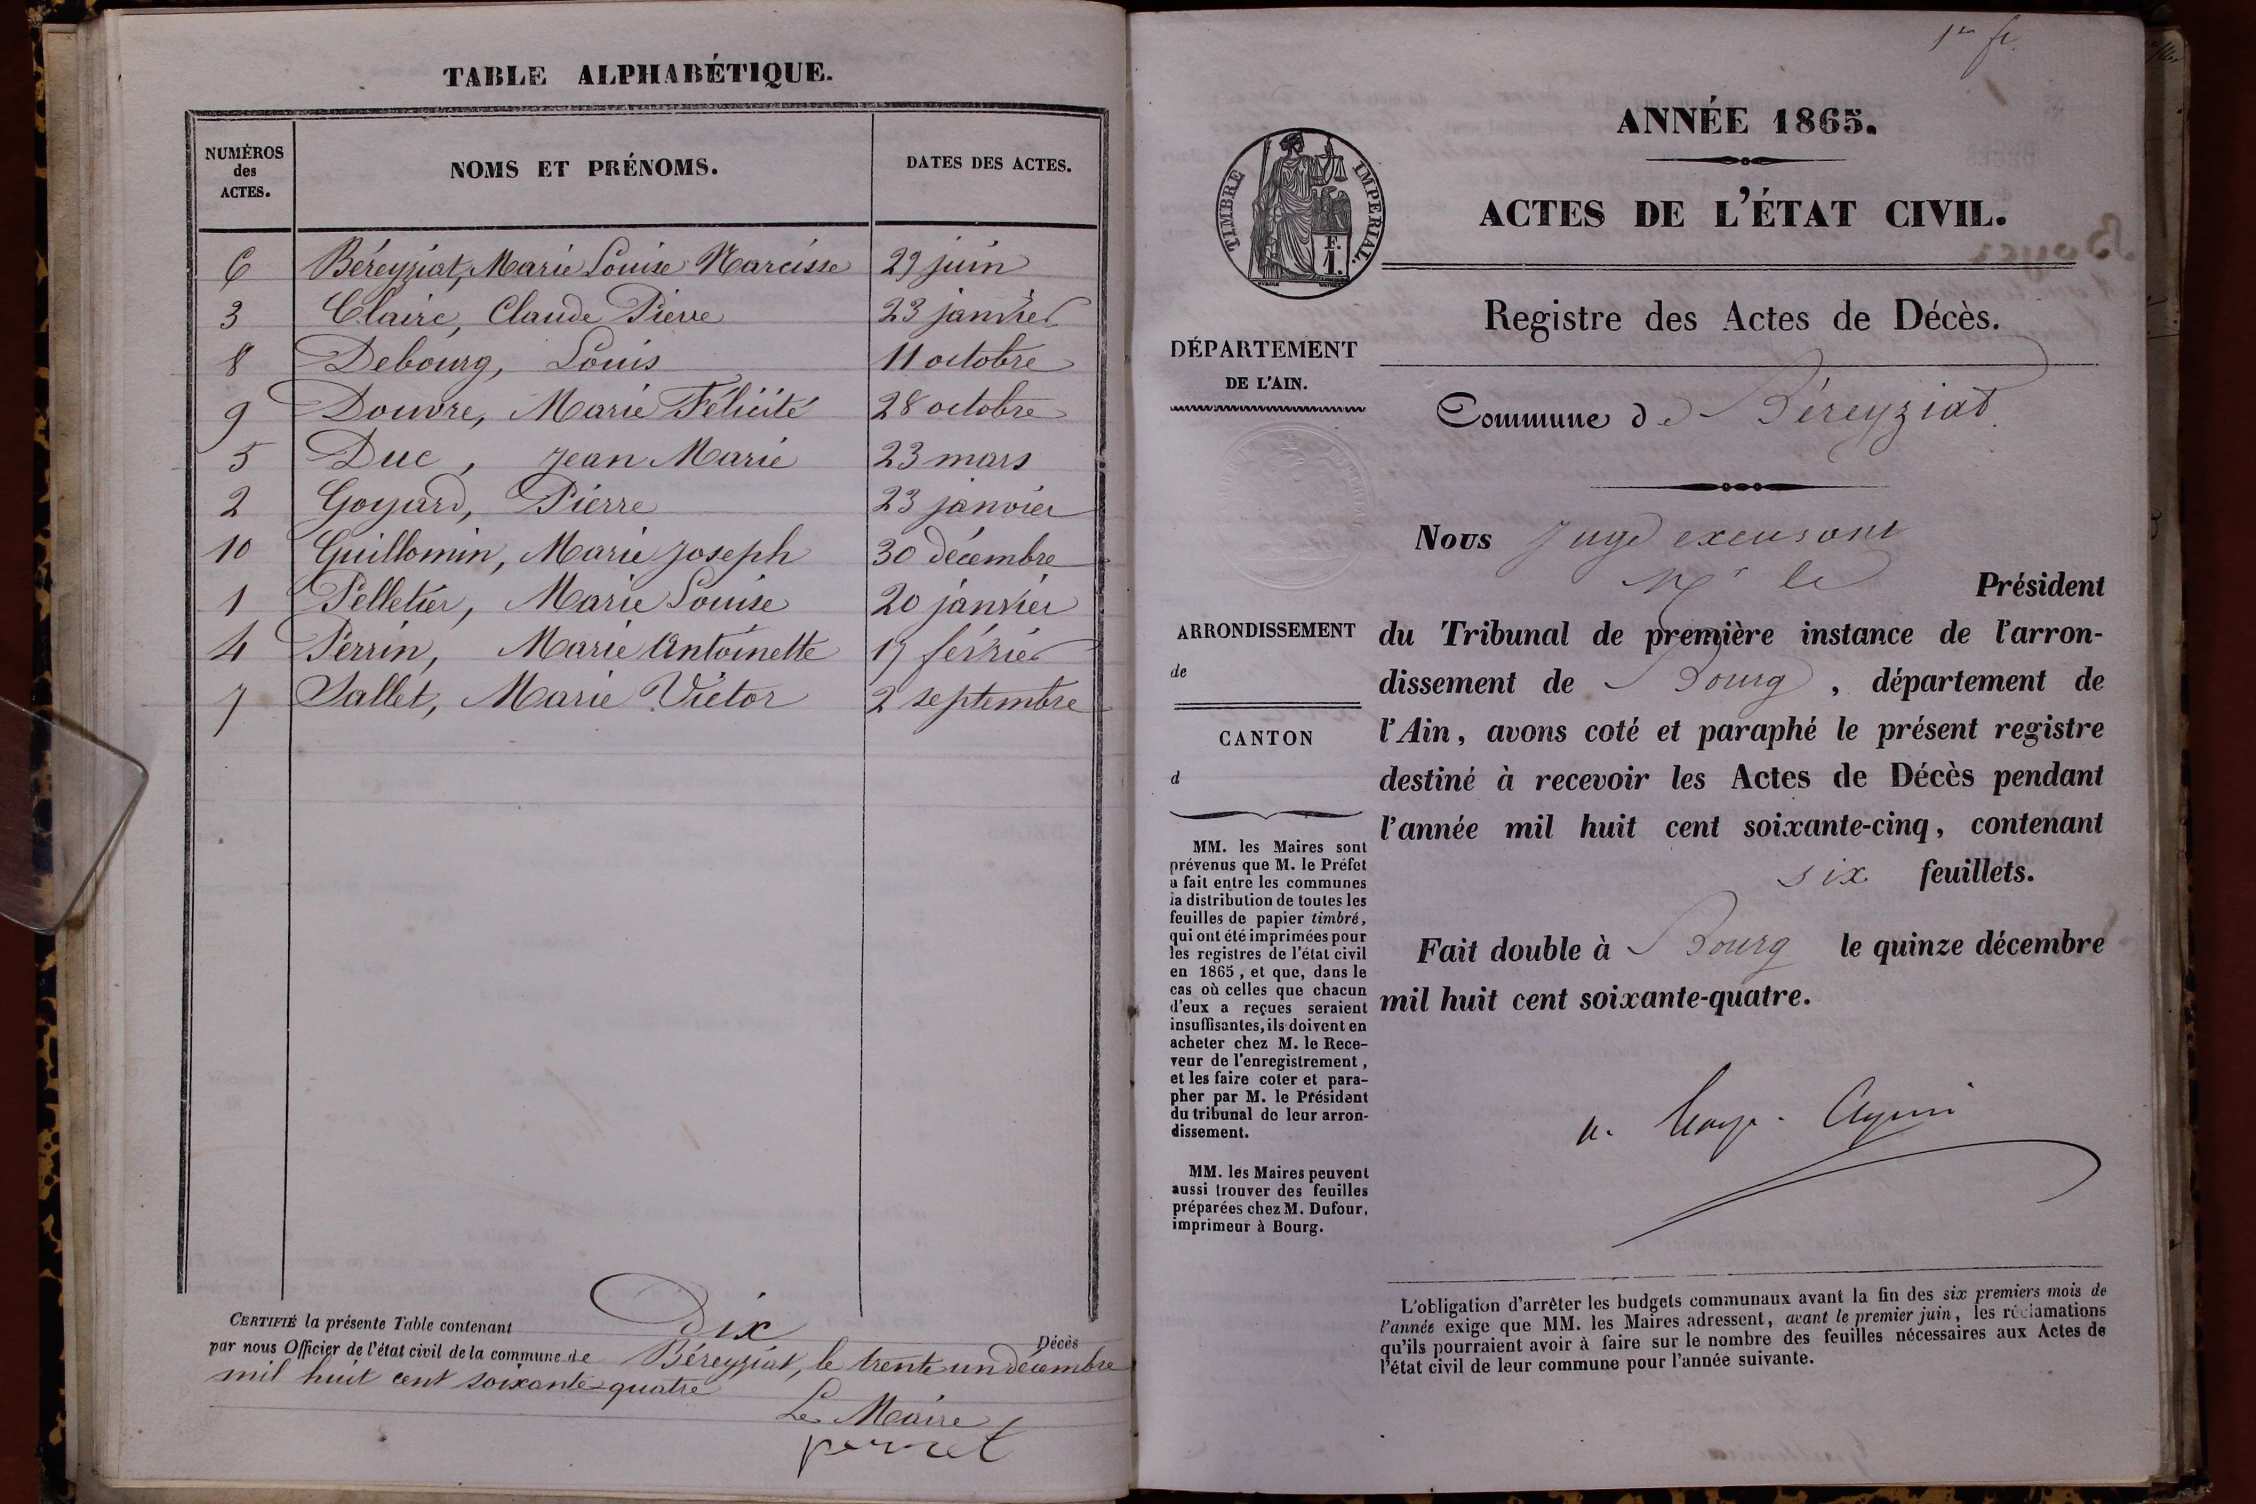 TABLE ALPHABÉTIQUE.
NUMÉROS
des
ACTES.
NOMS ET PRÉNOMS.
DATES DES ACTES.
6 Béreyziat, Marie Louise Narcisse 29 juin
3 Claire, Claude Pierre 23 janvier
8 Debourg, Louis 11 octobre
9 Douvre, Marie Félicité 28 octobre
5 Duc, Jean Marie 23 mars
2 Goyard, Pierre 23 janvier
10 Guillomin, Marie Joseph 30 décembre
1 Pelletier, Marie Louise 20 janvier
4 Perrin, Marie Antoinette 19 février
7 Sallet, Marie Victor 2 septembre
CERTIFIÉ la présente Table contenant Dix Décès
par nous Officier de l'état civil de la commune de Béreyziat, le trente un décembre
mil huit cent soixante quatre
Le Maire
1er f.
ANNÉE 1865.
ACTES DE L'ÉTAT CIVIL.
TIMBRE IMPERIAL.
F.
1.
Registre des Actes de Décès.
DÉPARTEMENT
DE L'AIN.
Commune de Béreyziat
Nous Juge
Mr le Président
ARRONDISSEMENT
de
CANTON
d
du Tribunal de première instance de l'arron-
dissement de Bourg, département de
l'Ain, avons coté et paraphé le présent registre
destiné à recevoir les Actes de Décès pendant
l'année mil huit cent soixante-cinq, contenant
six feuillets.
Fait double à Bourg le quinze décembre
mil huit cent soixante-quatre.
MM. les Maires sont
prévenus que M. le Préfet
a fait entre les communes
la distribution de toutes les
feuilles de papier timbré,
qui ont été imprimées pour
les registres de l'état civil
en 1865, et que, dans le
cas où celles que chacun
d'eux a reçues seraient
insuffisantes, ils doivent en
acheter chez M. le Rece-
veur de l'enregistrement,
et les faire coter et para-
pher par M. le Président
du tribunal de leur arron-
dissement.
MM. les Maires peuvent
aussi trouver des feuilles
préparées chez M. Dufour,
imprimeur à Bourg.
L'obligation d'arrêter les budgets communaux avant la fin des six premiers mois de
l'année exige que MM. les Maires adressent, avant le premier juin, les réclamations
qu'ils pourraient avoir à faire sur le nombre des feuilles nécessaires aux Actes de
l'état civil de leur commune pour l'année suivante.